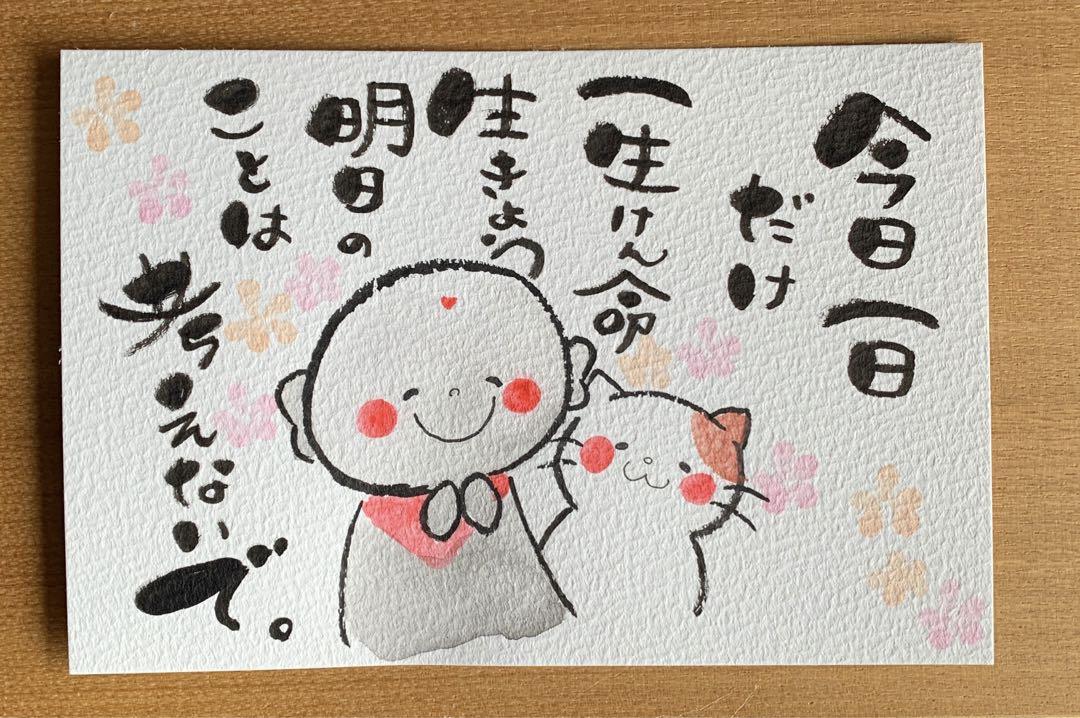 今日一日
だけ
一生けん命
生きよう
明日の
ことは
考えないで。